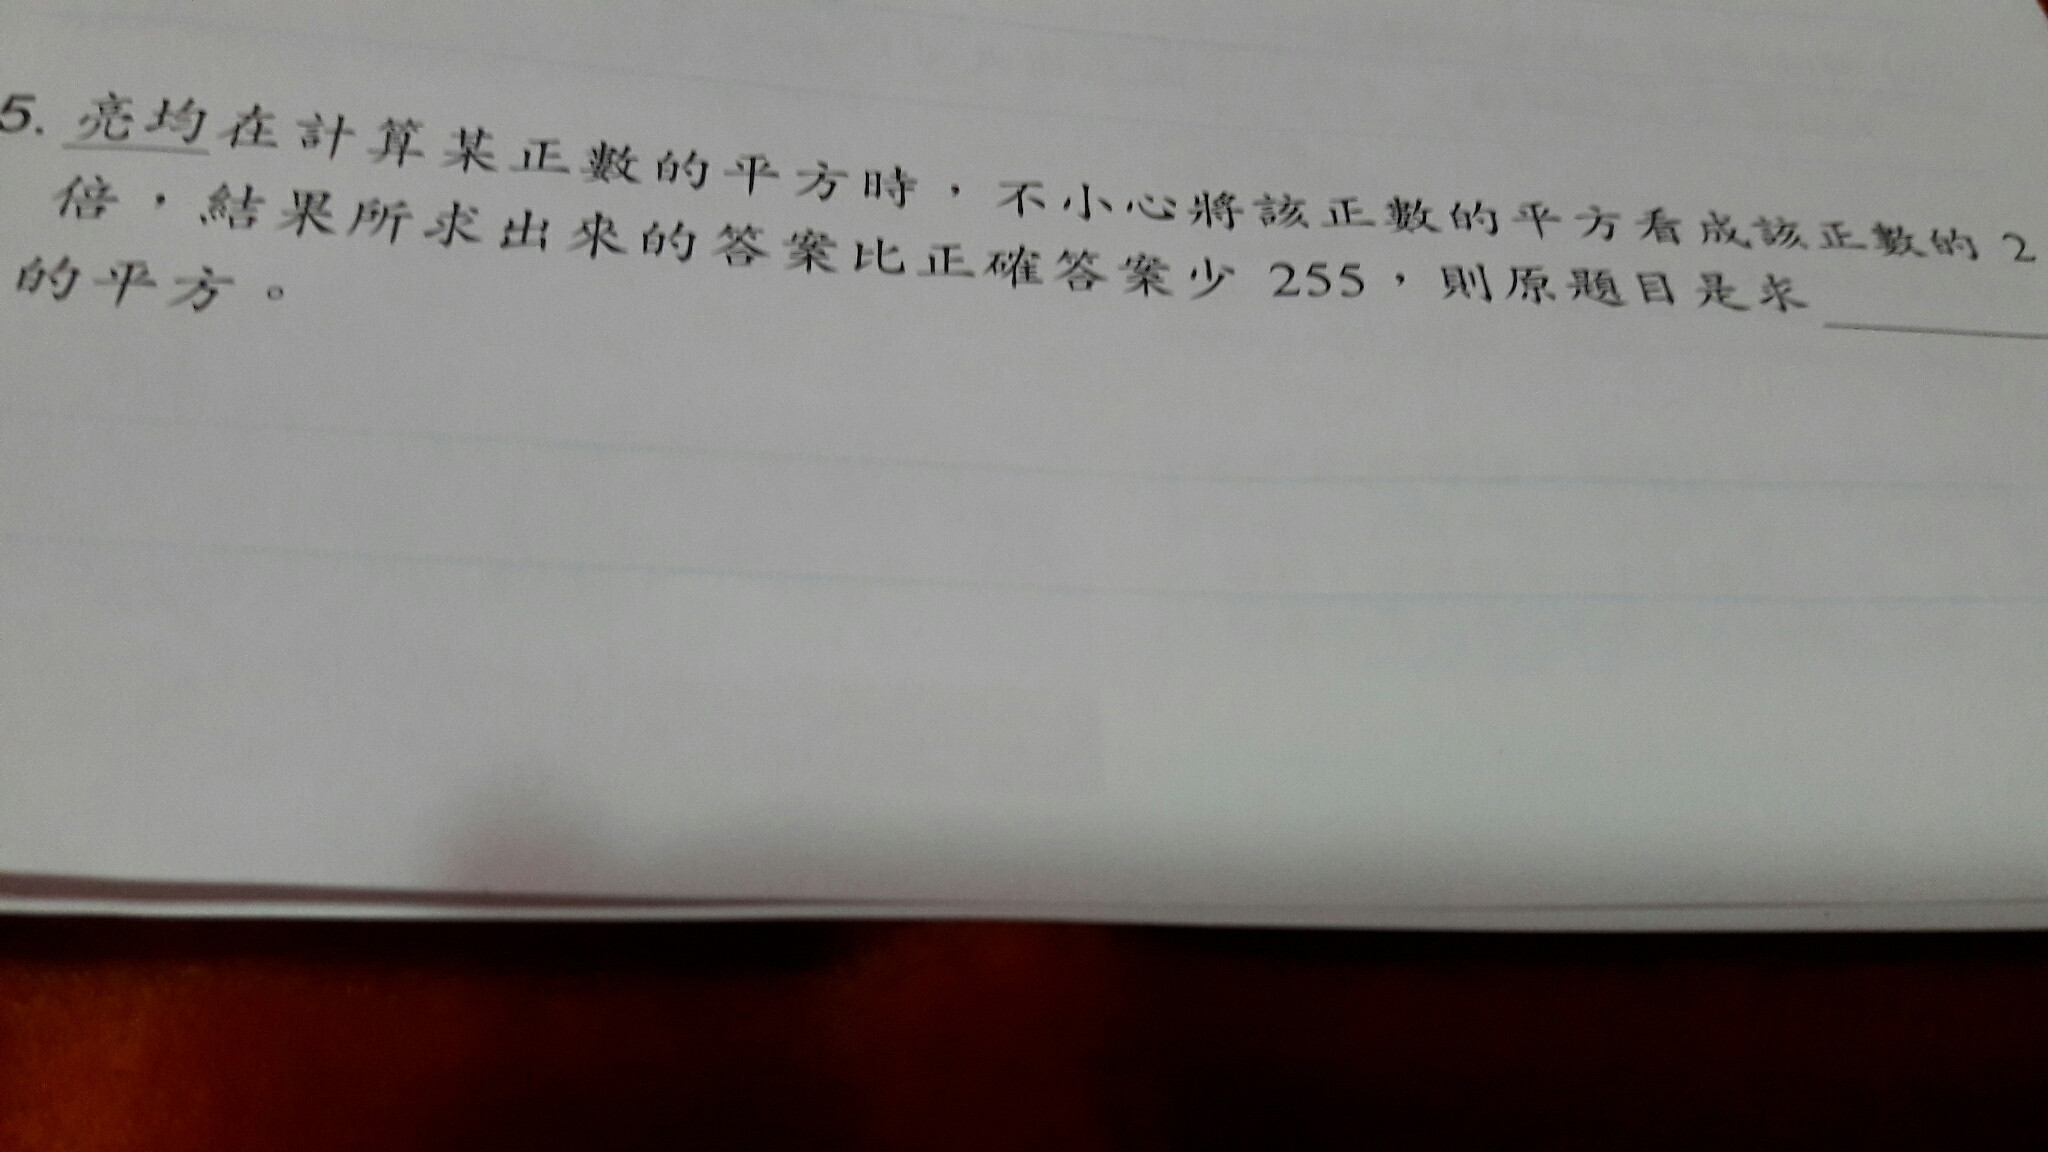 5. 亮均在計算某正數的平方時，不小心將該正數的平方看成該正數的 2
倍，結果所求出來的答案比正確答案少 255，則原題目是求
的平方。